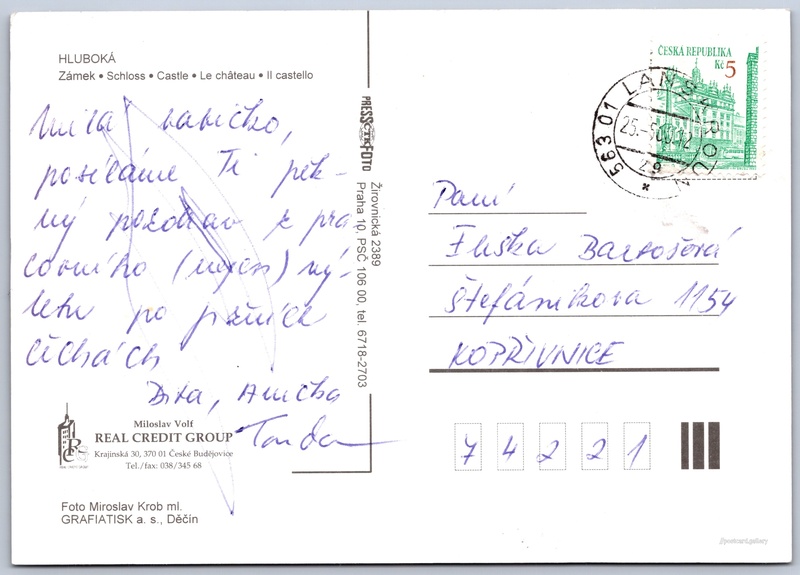 HLUBOKÁ
Zámek • Schloss • Castle • Le château • Il castello
Milá babičko,
posíláme Ti pěk-
ný pozdrav z pra
covního (nejen) vý-
letu po jižních
Čechách
Dita, Anička
Tonda
Miloslav Volf
REAL CREDIT GROUP
Krajinská 30, 370 01 České Budějovice
Tel./fax: 038/345 68
Foto Miroslav Krob ml.
GRAFIATISK a. s., Děčín
PRESS FOTO
Žirovnická 2389
Praha 10, PSČ 106 00, tel. 6718-2703
ČESKÁ REPUBLIKA
Kč 5
563 01 LANŠKROUN
Paní
Eliška Bartošová
Štefánikova 1154
KOPŘIVNICE
74221
postcard.gallery